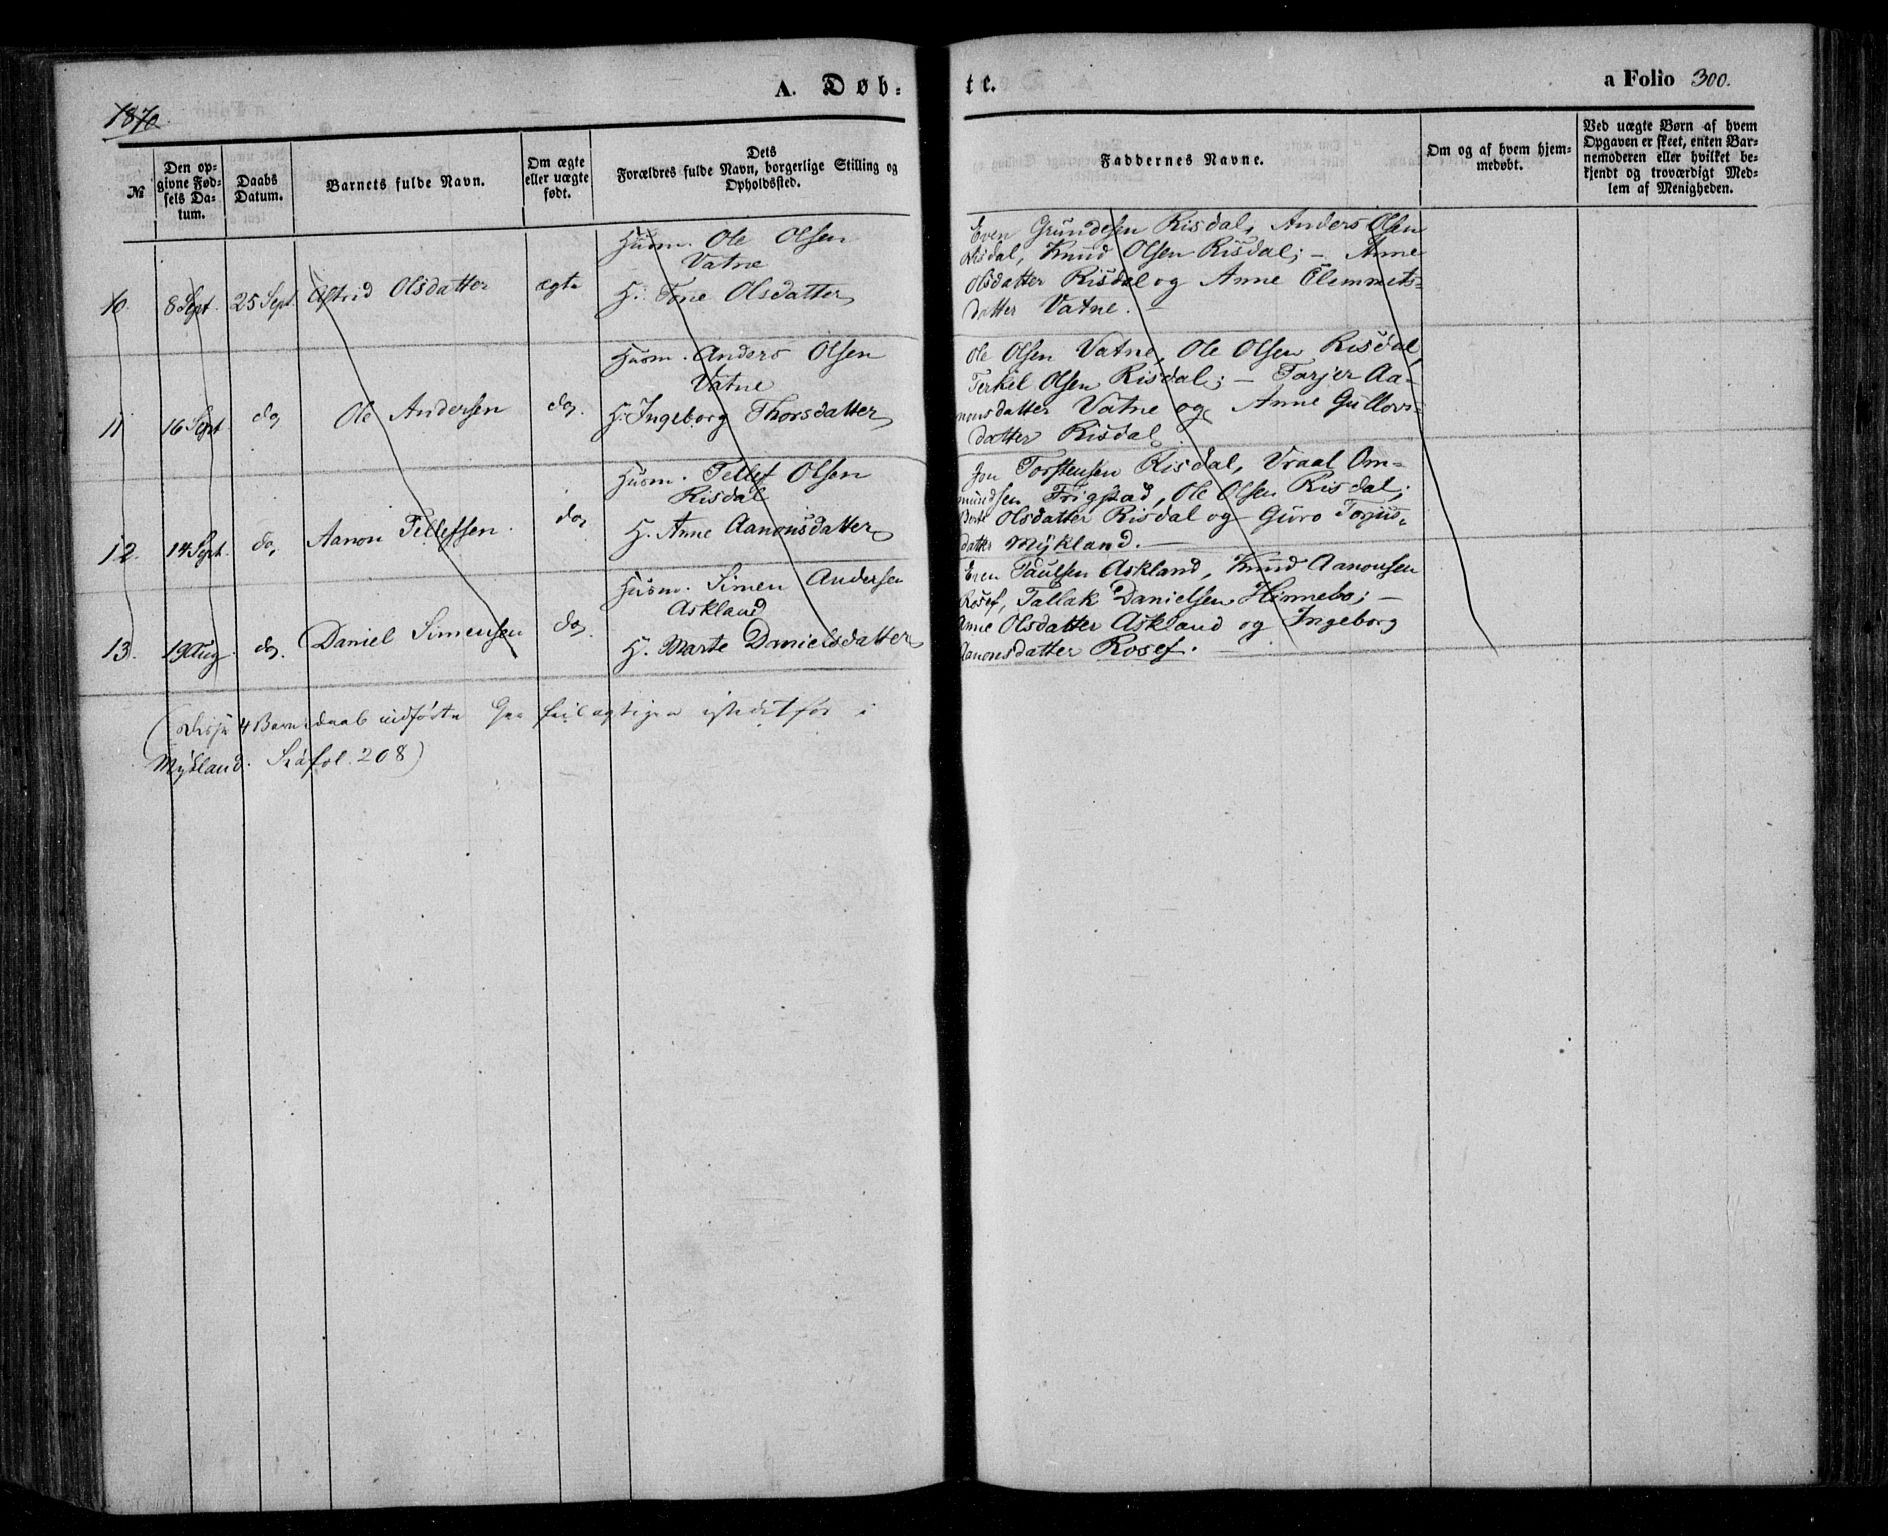 A. Døb=
te.
a Folio 300.
1870.
№
Den op-
givne Fød-
sels Da-
tum.
Daabs
Datum.
Barnets fulde Navn.
Om ægte
eller uægte
født.
Dets
Forældres fulde Navn, borgerlige Stilling og
Opholdssted.
Faddernes Navne.
Om og af hvem hjem-
medøbt.
Ved uægte Børn af hvem
Opgaven er skeet, enten Bar-
nemoderen eller hvilket be-
kjendt og troværdigt Med-
lem af Menigheden.
10. 8 Sept. 25 Sept. Astrid Olsdatter ægte
Husm. Ole Olsen
Vatne
H. Tone Olsdatter
Even Grundesen Risdal, Anders Olsen
Risdal, Knud Olsen Risdal; – Anne
Olsdatter Risdal og Anne Clemmets-
datter Vatne. –
11 16 Sept. do, Ole Andersen do.
Husm. Anders Olsen
Vatne
H. Ingeborg Thorsdatter
Ole Olsen Vatne, Ole Olsen Risdal,
Terkel Olsen Risdal; – Torjer Aa-
nonsdatter Vatne og Anne Gullovs-
datter Risdal.
12. 14 Sept. do, Aanon Tellefsen. do,
Husm. Tellef Olsen
Risdal
H. Anne Aanonsdatter
Jon Torstensen Risdal, Vraal Om-
mundsen Frigstad, Ole Olsen Risdal;
Berte Olsdatter Risdal og Guro Torjus-
datter Mykland. –
13. 19 Aug. do. Daniel Simensen do.
Husm. Simen Andersen
Askland
H. Marte Danielsdatter
Even Paulsen Askland, Knud Aanonsen
Rosef, Tallak Danielsen Hinnebo; –
Anne Olsdatter Askland og Ingeborg
Aanonsdatter Rosef.
(Disse 4 Barnedaab indførte her feilagtigen istedetfor i
Mykland. Se fol. 208)